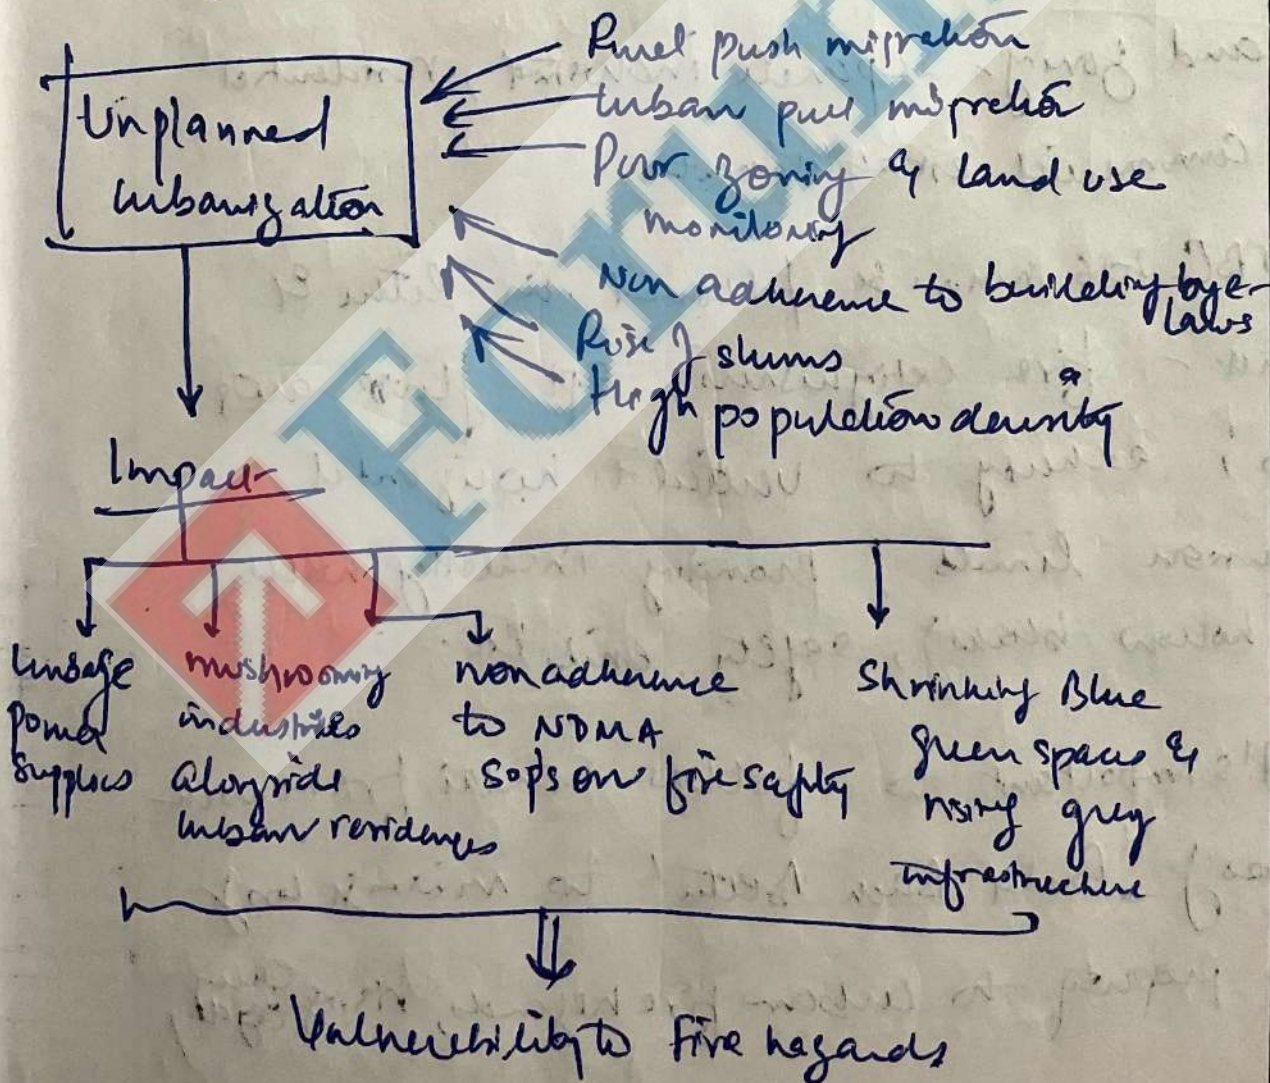 Unplanned
Urbanization
Rural push migration
Urban pull migration
Poor zoning & land use
monitoring
Non adherence to building bye-
laws
Rise of slums
High population density
Impact
power
supplies
mushrooming
industries
alongside
urban residences
non adherence
to NDMA
Sops on fire safety
Shrinking Blue
green spaces &
rising grey
infrastructure
Vulnerability to Fire hazards
Forum